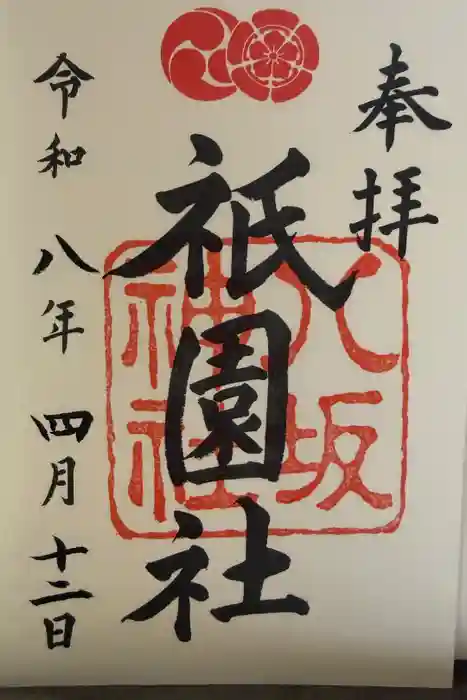 奉拝
八坂神社
祇園社
令和八年四月十二日